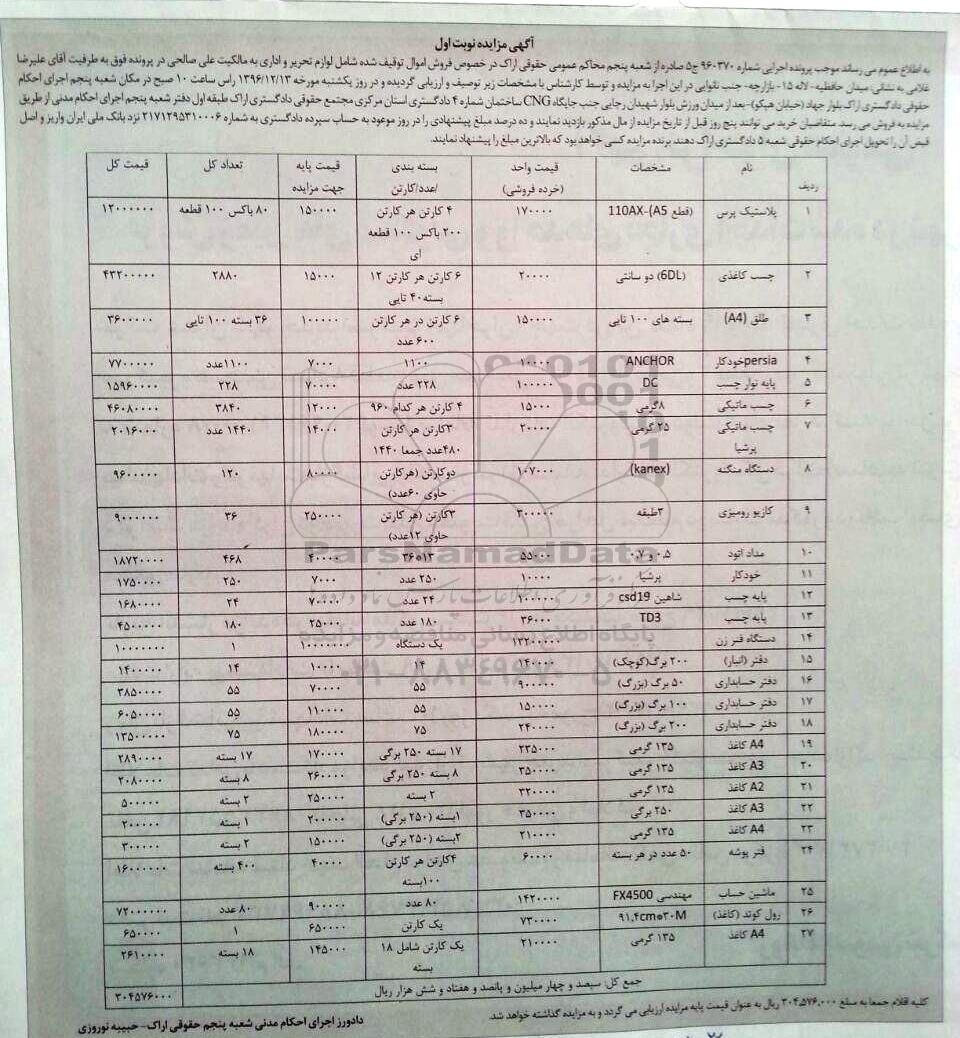 آگهی مزایده نوبت اول
به اطلاع عموم می رساند بموجب پرونده اجرایی شماره ۹۶۰۳۷۰ ج۵ صادره از شعبه پنجم محاکم عمومی حقوقی اراک در خصوص فروش اموال توقیف شده شامل لوازم تحریر و اداری به مالکیت علی صالحی در پرونده فوق به طرفیت آقای علیرضا
غلامی به نشانی: میدان حافظیه- لاله ۱۵- بازارچه- جنب نانوایی در این اجرا به مزایده و توسط کارشناس با مشخصات زیر توصیف و ارزیابی گردیده و در روز یکشنبه مورخه ۱۳۹۶/۱۲/۱۳ راس ساعت ۱۰ صبح در مکان شعبه پنجم اجرای احکام
حقوقی دادگستری اراک بلوار جهاد (خیابان هپکو)- بعد از میدان ورزش بلوار شهیدان رجایی جنب جایگاه CNG ساختمان شماره ۴ دادگستری استان مرکزی مجتمع حقوقی دادگستری اراک طبقه اول دفتر شعبه پنجم اجرای احکام مدنی از طریق
مزایده به فروش می رسد. متقاضیان خرید می توانند پنج روز قبل از تاریخ مزایده از مال مذکور بازدید نمایند و ده درصد مبلغ پیشنهادی را در روز موعود به حساب سپرده دادگستری به شماره ۲۱۷۱۲۹۵۳۱۰۰۰۶ نزد بانک ملی ایران واریز و اصل
قبض آن را تحویل اجرای احکام حقوقی شعبه ۵ دادگستری اراک دهند. برنده مزایده کسی خواهد بود که بالاترین مبلغ را پیشنهاد نمایند.
ردیف نام مشخصات قیمت واحد (خرده فروشی) بسته بندی /عدد/کارتن قیمت پایه جهت مزایده تعداد کل قیمت کل
۱ پلاستیک پرس (قطع A5)-110AX ۱۷۰۰۰۰ ۴ کارتن هر کارتن ۲۰۰ باکس ۱۰۰ قطعه ای ۱۵۰۰۰۰ ۸۰ باکس ۱۰۰ قطعه ۱۲۰۰۰۰۰۰
۲ چسب کاغذی (6DL) دو سانتی ۲۰۰۰۰ ۶ کارتن هر کارتن ۱۲ بسته ۴۰ تایی ۱۵۰۰۰ ۲۸۸۰ ۴۳۲۰۰۰۰۰
۳ طلق (A4) بسته های ۱۰۰ تایی ۱۵۰۰۰۰ ۶ کارتن در هر کارتن ۶۰۰ عدد ۱۰۰۰۰۰ ۳۶ بسته ۱۰۰ تایی ۳۶۰۰۰۰۰
۴ persiaخودکار ANCHOR ۱۰۰۰۰ ۱۱۰۰ ۷۰۰۰ ۱۱۰۰عدد ۷۷۰۰۰۰۰
۵ پایه نوار چسب DC ۱۰۰۰۰۰ ۲۲۸ عدد ۷۰۰۰۰ ۲۲۸ ۱۵۹۶۰۰۰۰
۶ چسب ماتیکی ۸گرمی ۱۵۰۰۰ ۴ کارتن هر کدام ۹۶۰ ۱۲۰۰۰ ۳۸۴۰ ۴۶۰۸۰۰۰۰
۷ چسب ماتیکی پرشیا ۲۵ گرمی ۲۰۰۰۰ ۳کارتن هر کارتن ۴۸۰عدد جمعا ۱۴۴۰ ۱۴۰۰۰ ۱۴۴۰ عدد ۲۰۱۶۰۰۰
۸ دستگاه منگنه (kanex) ۱۰۷۰۰۰ دوکارتن (هرکارتن حاوی ۶۰عدد) ۸۰۰۰۰ ۱۲۰ ۹۶۰۰۰۰۰
۹ کازیو رومیزی ۳طبقه ۳۰۰۰۰۰ ۳کارتن (هر کارتن حاوی ۱۲عدد) ۲۵۰۰۰۰ ۳۶ ۹۰۰۰۰۰۰
۱۰ مداد اتود ۰.۵ و ۰.۷ ۵۵۰۰۰ ۳۶*۱۳ ۴۰۰۰۰ ۴۶۸ ۱۸۷۲۰۰۰۰
۱۱ خودکار پرشیا ۱۰۰۰۰ ۲۵۰ عدد ۷۰۰۰ ۲۵۰ ۱۷۵۰۰۰۰
۱۲ پایه چسب شاهین csd19 ۱۰۰۰۰۰ ۲۴ عدد ۷۰۰۰۰ ۲۴ ۱۶۸۰۰۰۰
۱۳ پایه چسب TD3 ۳۶۰۰۰ ۱۸۰ عدد ۲۵۰۰۰ ۱۸۰ ۴۵۰۰۰۰۰
۱۴ دستگاه فنر زن ۱۳۲۰۰۰۰۰ یک دستگاه ۱۰۰۰۰۰۰۰ ۱ ۱۰۰۰۰۰۰۰
۱۵ دفتر (انبار) ۲۰۰ برگ(کوچک) ۱۴۰۰۰۰ ۱۴ ۱۰۰۰۰۰ ۱۴ ۱۴۰۰۰۰۰
۱۶ دفتر حسابداری ۵۰ برگ (بزرگ) ۹۰۰۰۰۰ ۵۵ ۷۰۰۰۰ ۵۵ ۳۸۵۰۰۰۰
۱۷ دفتر حسابداری ۱۰۰ برگ (بزرگ) ۱۵۰۰۰۰ ۵۵ ۱۱۰۰۰۰ ۵۵ ۶۰۵۰۰۰۰
۱۸ دفتر حسابداری ۲۰۰ برگ (بزرگ) ۲۴۰۰۰۰ ۷۵ ۱۸۰۰۰۰ ۷۵ ۱۳۵۰۰۰۰۰
۱۹ A4 کاغذ ۱۳۵ گرمی ۲۳۵۰۰۰ ۱۷ بسته ۲۵۰ برگی ۱۷۰۰۰۰ ۱۷ بسته ۲۸۹۰۰۰۰
۲۰ A3 کاغذ ۱۳۵ گرمی ۳۵۰۰۰۰ ۸ بسته ۲۵۰ برگی ۲۶۰۰۰۰ ۸ بسته ۲۰۸۰۰۰۰
۲۱ A2 کاغذ ۱۳۵ گرمی ۳۲۰۰۰۰ ۲ بسته ۲۵۰۰۰۰ ۲ بسته ۵۰۰۰۰۰
۲۲ A3 کاغذ ۲۵۰ برگی ۳۵۰۰۰۰ ۱بسته (۲۵۰ برگی) ۲۰۰۰۰۰ ۱ بسته ۲۰۰۰۰۰
۲۳ A4 کاغذ ۱۳۵ گرمی ۲۱۰۰۰۰ ۲بسته (۲۵۰ برگی) ۱۵۰۰۰۰ ۲ بسته ۳۰۰۰۰۰
۲۴ فنر پوشه ۵۰ عدد در هر بسته ۶۰۰۰۰ ۴کارتن هر کارتن ۱۰۰بسته ۴۰۰۰۰ ۴۰۰ بسته ۱۶۰۰۰۰۰۰
۲۵ ماشین حساب مهندسی FX4500 ۱۴۲۰۰۰۰ ۸۰ عدد ۹۰۰۰۰۰ ۸۰ عدد ۷۲۰۰۰۰۰۰
۲۶ رول کوتد (کاغذ) ۹۱,۴cm*۳۰M ۷۳۰۰۰۰ یک کارتن ۶۵۰۰۰۰ ۱ ۶۵۰۰۰۰
۲۷ A4 کاغذ ۱۳۵ گرمی ۲۱۰۰۰۰ یک کارتن شامل ۱۸ بسته ۱۴۵۰۰۰ ۱۸ بسته ۲۶۱۰۰۰۰
جمع کل: سیصد و چهار میلیون و پانصد و هفتاد و شش هزار ریال ۳۰۴۵۷۶۰۰۰
کلیه اقلام جمعا به مبلغ ۳۰۴,۵۷۶,۰۰۰ ریال به عنوان قیمت پایه مزایده ارزیابی می گردد و به مزایده گذاشته خواهد شد.
دادورز اجرای احکام مدنی شعبه پنجم حقوقی اراک- حبیبه نوروزی
ParsNamadData
پایگاه اطلاع رسانی مناقصه و مزایده
۰۲۱-۸۸۳۴۹۶۷۰-۵